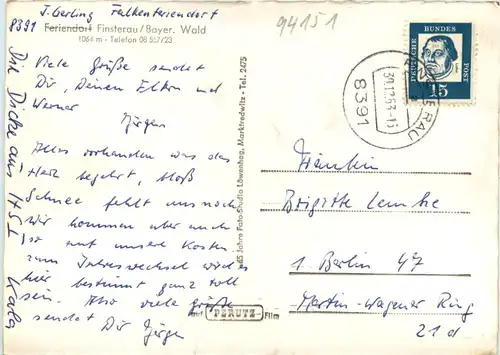 J. Gerling Falkenferiendorf
8391 Feriendorf Finsterau/Bayer. Wald
1064 m - Telefon 08 557/23
94151
Viele Grüße sendet
Dir, Deinen Eltern und
Werner
Jürgen
Alles vorhanden was das
Herz begehrt, bloß
Schnee fehlt uns noch
Wir kommen aber auch
so auf unsere Kosten.
Zum Jahreswechsel wird es
hier bestimmt ganz toll
sein. Also viele Grüße
sendet Dir Jürgen
65 Jahre Foto-Studio Löwenhag, Marktredwitz - Tel. 2475
auf PERUTZ Film
DEUTSCHE BUNDESPOST
15
FINSTERAU
30.12.63-15
8391
Fräulein
Brigitte Lemke
1 Berlin 47
Martin-Wagner Ring
21d